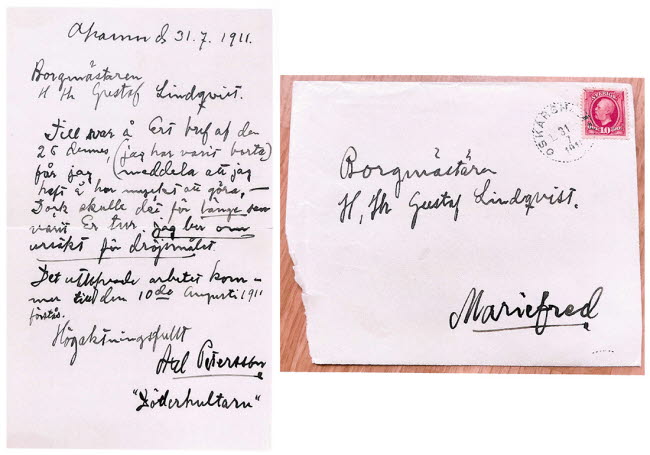 31.7. 1911.
Borgmästaren
H Th Gustaf Lindqvist.
Till svar å Ert bref af den
26 dennes, (jag har varit borta)
får jag meddela att jag
haft å har mycket att göra, –
Dock skulle det för länge sen
varit Er tur. jag ber om
ursäkt för dröjsmålet
Det utlofvade arbetet kom–
mer till den 10de Augusti 1911
förstås.
Högaktningsfullt
Axel Petersson
"Döderhultarn"
OSKARSH
31
SVERIGE
10
Borgmästaren
H, Th Gustaf Lindqvist.
Mariefred